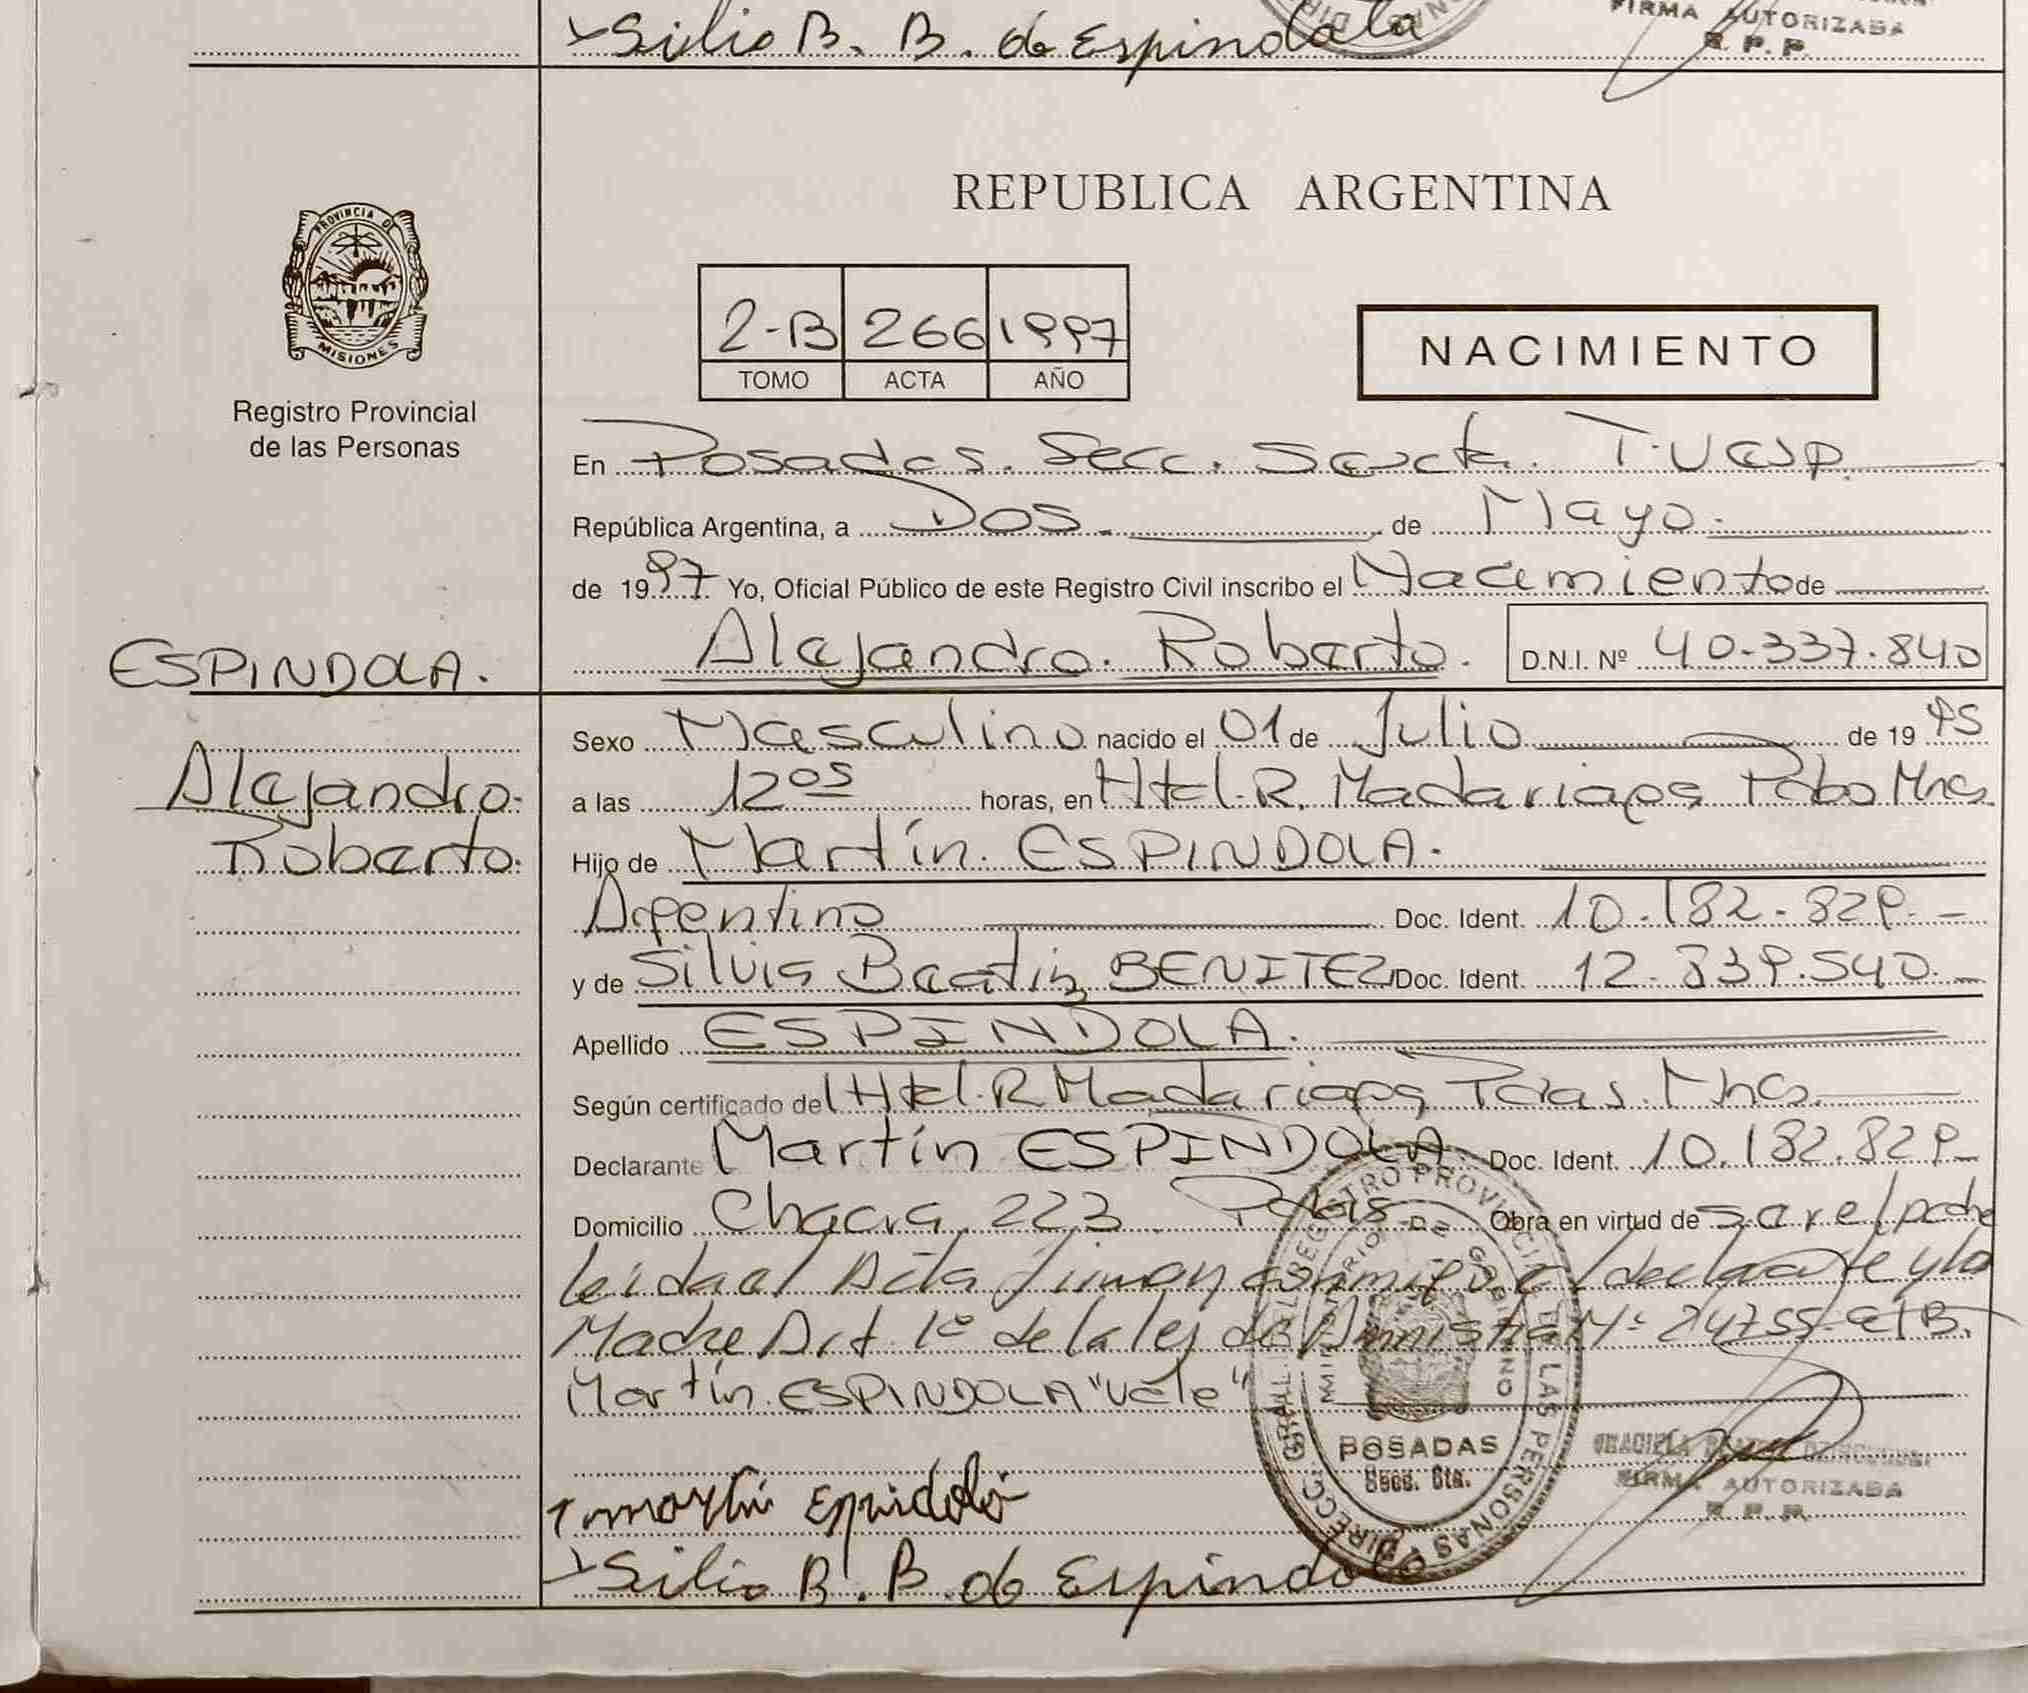 Silvia B. B. de Espindola
FIRMA AUTORIZADA
R. P. P.
PROVINCIA DE
MISIONES
Registro Provincial
de las Personas
REPUBLICA ARGENTINA
2-B 266 1997
TOMO ACTA AÑO
NACIMIENTO
En Posadas. Secc. Sexta.
República Argentina, a Dos. de Mayo.
de 1997 Yo, Oficial Público de este Registro Civil inscribo el Nacimiento de
ESPINDOLA.
Alejandro. Roberto. D.N.I. Nº 40.337.840
Alejandro.
Roberto.
Sexo Masculino nacido el 01 de Julio de 1995
a las 12 05 horas, en Htal. R. Madariaga Mnes
Hijo de Martín. ESPINDOLA.
Argentino Doc. Ident. 10.182.829.
y de Silvia Beatriz BENITEZ Doc. Ident. 12.839.540.
Apellido ESPINDOLA.
Según certificado del Htal. R Madariaga Pdas. Mnes.
Declarante Martín ESPINDOLA Doc. Ident. 10.182.829
Domicilio Chacra 223 Obra en virtud de ser el padre
leida el Acta firman conmigo el declarante y la
Madre Art. 1º de la ley de Amnistia Nº 24755
Martín. ESPINDOLA "Vale"
DIRECC. GRAL. DEL REGISTRO PROVINCIAL DE LAS PERSONAS
MINISTERIO DE GOBIERNO
POSADAS
Secc. 6ta.
FIRMA AUTORIZADA
R. P. P.
martin Espindola
Silvia B. B. de Espindola